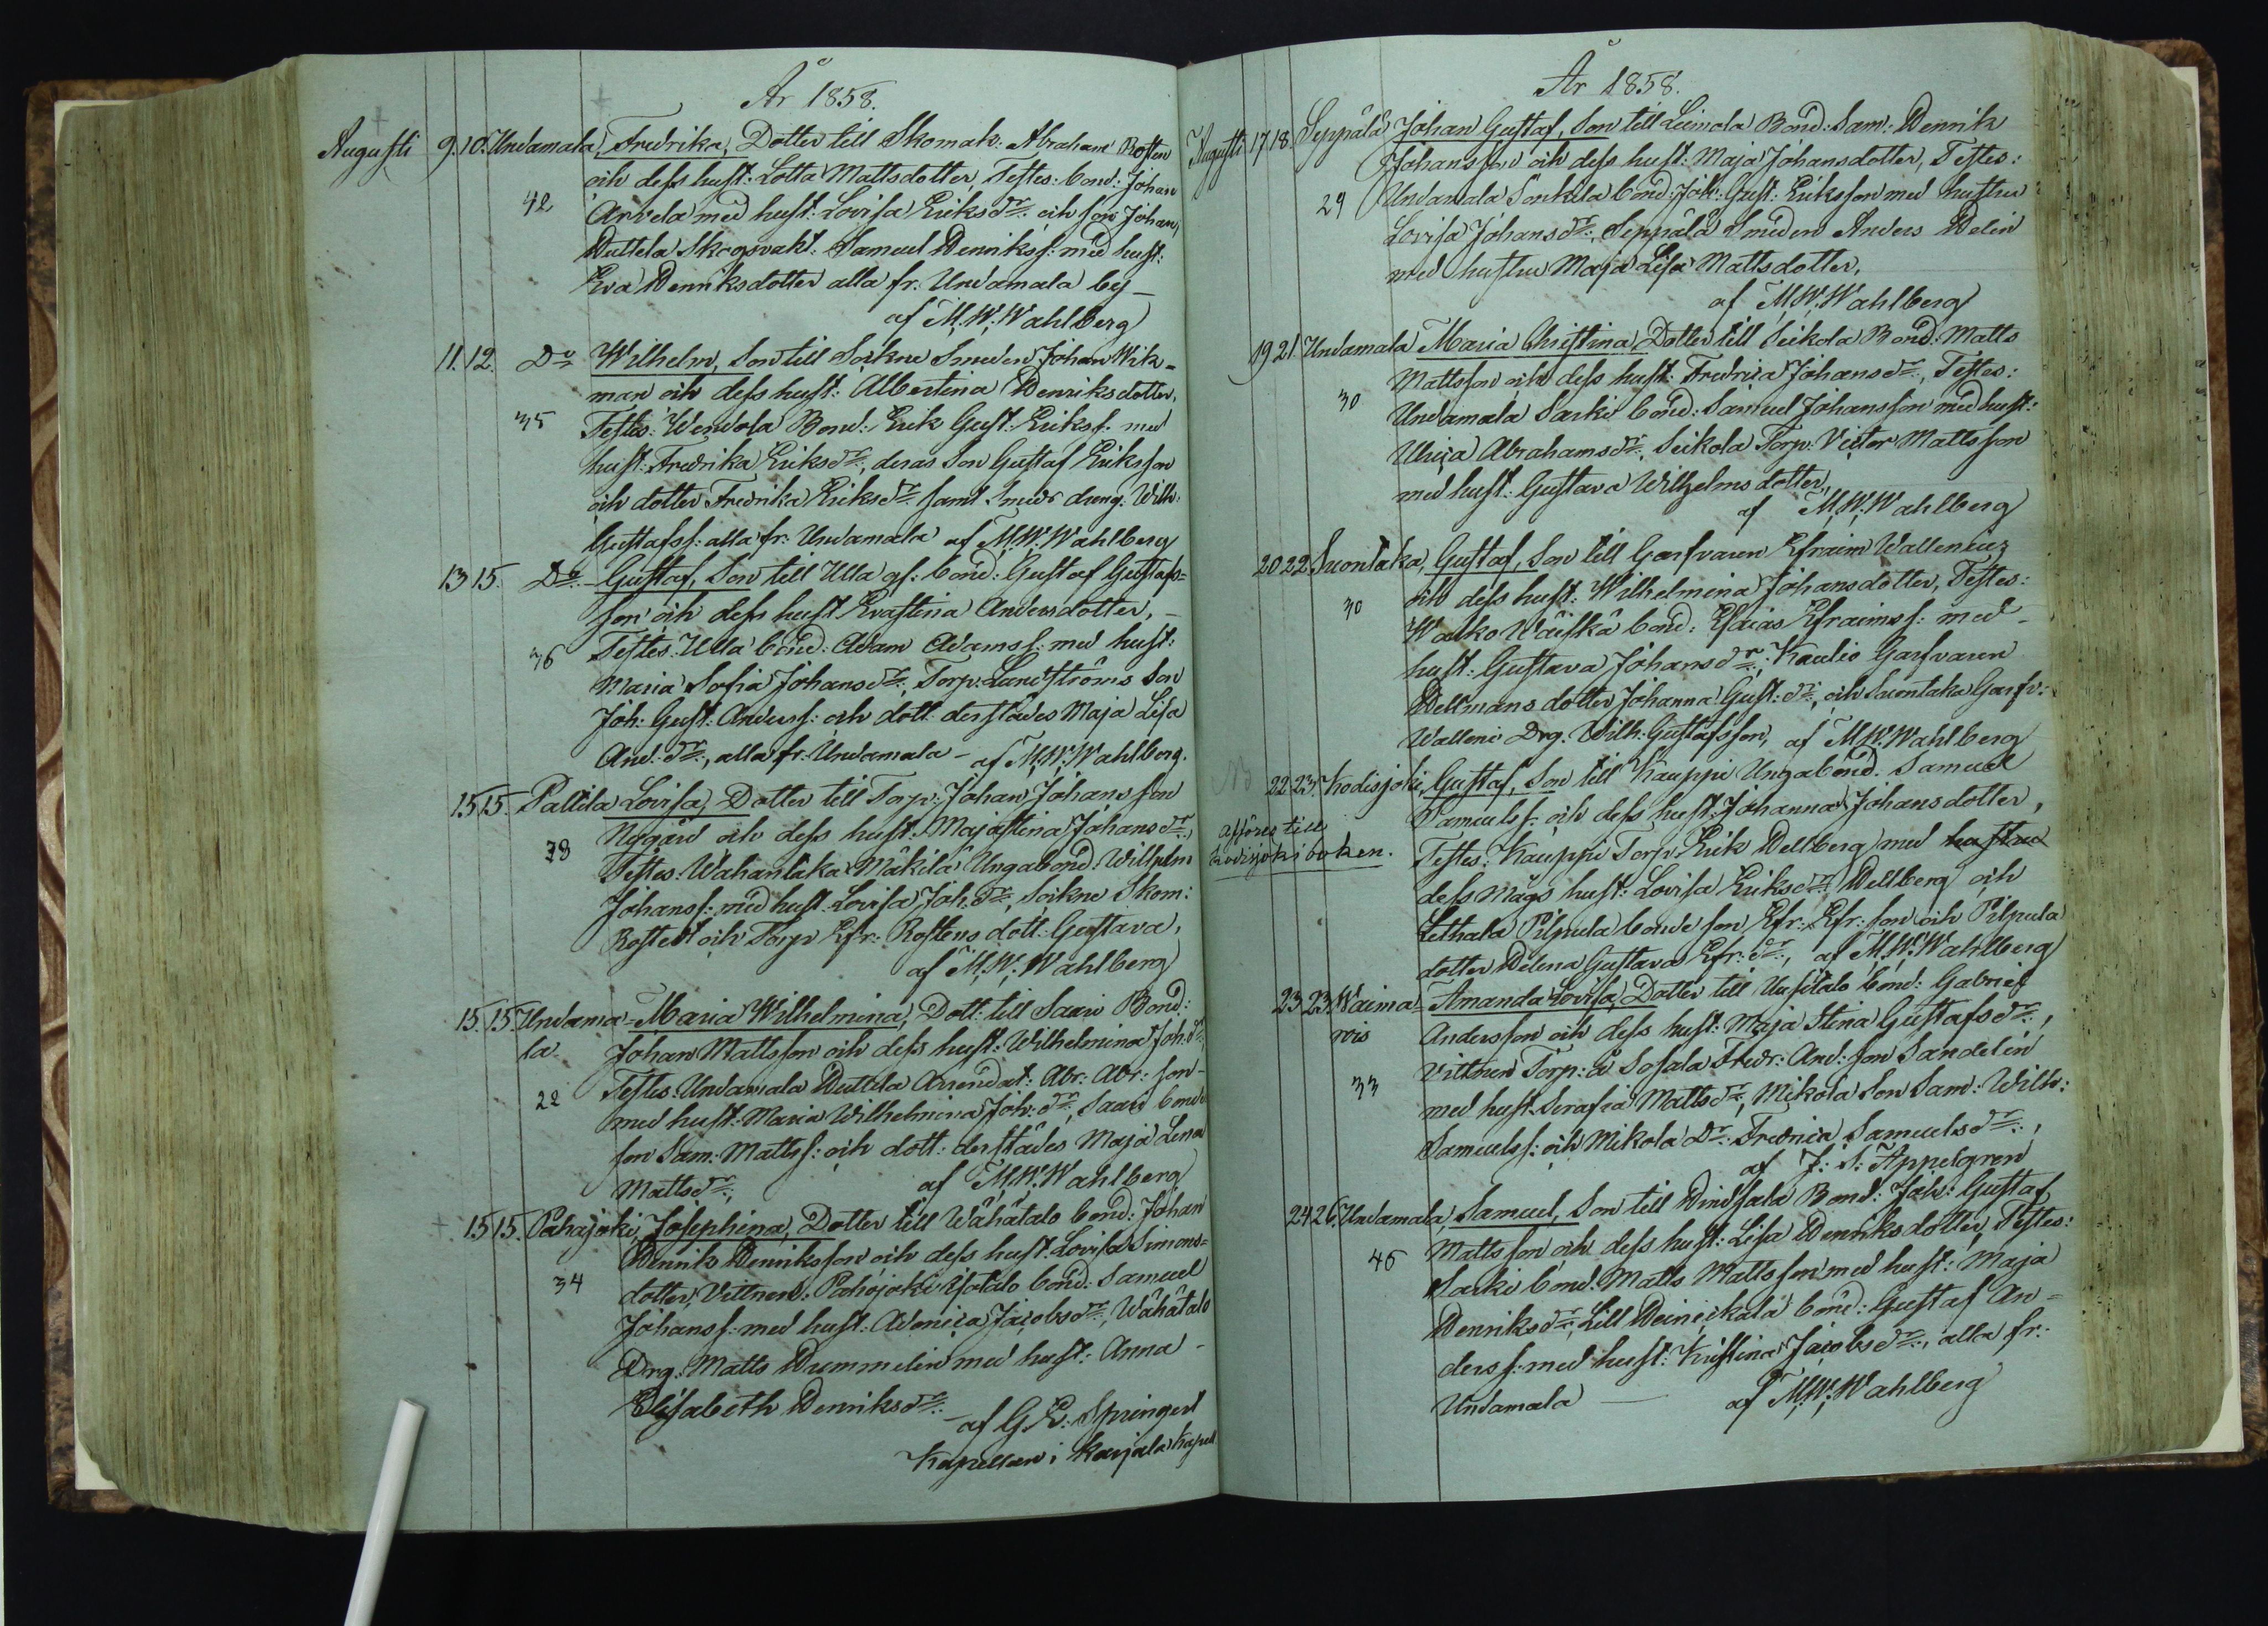 År 1858.
Augusti 9. 10. Undamala, Fredrika, Dotter till Skomak: Abraham Rosten
och dess hust: Lotta Mattsdotter, Testes: bond: Johan
42 Arvela med hust: Lovisa Eriksdr: och son Johan,
Huttela Skogsvakt: Samuel Henrikss: med hust:
Eva Henriksdotter alla fr. Undamala by –
af M.W. Wahlberg
11. 12. Do Wilhelm, Son till Sockne Smeden Johan Wik=
man och dess hust: Albertina Henriksdotter,
35 Testes: Wendola Bond: Erik Gust: Erikss. med
hust: Fredrika Eriksdr:, deras Son Gustaf Eriksson
och dotter Fredrika Eriksdr: samt Smeds dreng. Wilh:
Gustafss: alla fr: Undamala af M.W. Wahlberg
13 15. Do Gustaf, Son till Ulla gl: bond: Gustaf Gustafs=
son och dess hust Evastina Andersdotter, –
36 Testes: Ulla bond: Adam Adamss: med hust:
Maria Sofia Johansdr:, Torp. Lundströms Son
Joh: Gust: Anderss: och dott derstädes Maja Lisa
And: dr:, alla fr. Undamala – af M.W. Wahlberg.
15 15. Paltila Lovisa, Dotter till Torp: Johan Johansson
Nygård och dess hust: Majastina Johansdr:,
38 Testes: Wahantaka Mäkilä Ungabond: Wilhelm
Johanss: med hust. Lovisa Joh. dr:, Sockne Skom:
Rostedt och Torp Efr: Rostens dott: Gustava,
af M.W. Wahlberg
15. 15. Undama= Maria Wilhelmina, Dott: till Saari Bond:
la Johan Mattsson och dess hust: Wilhelmina Joh: dr:
22 Testes: Undamala Huttela Arrendat: Abr: Abr: son –
med hust: Maria Wilhelmina Joh: dr:, Saari bonde
son Sam: Mattss: och dott: derstädes Maja Lena
Mattsdr:, af M.W. Wahlberg
15 15. Pahajoki, Josephina, Dotter till Wähätalo bond: Johan
Henrik Henriksson och dess hust. Lovisa Simons=
34 dotter, Vittnen: Pahojoki Isotalo bond: Samuel
Johanss: med hust: Adenica Jacobsdr:, Wähätalo
Drg: Matts Dummelin med hust: Anna –
Elisabeth Henriksdr:
– af G.E. Springert
Kapellan i Karjala Kapell
År 1858.
Augusti 17 18. Seppälä Johan Gustaf, Son till Leimola Bond: Sam: Henrik
Johansson och dess hust: Maja Johansdotter, Testes:
29 Undamala Sonkila bond: Joh: Gust: Eriksson med hustru
Lovisa Johansdr:, Seppälä Smeden Anders Helin
med hustru Maja Lisa Mattsdotter,
af M.W. Wahlberg
19 21. Undamala Maria Christina, Dotter till Seikola Bond: Matts
Mattsson och dess hust: Fredrica Johansdr:, Testes:
30 Undamala Sarki bond: Samuel Johansson med hust:
Ulrica Abrahamsdr:, Seikola Torp. Victor Mattsson
med hust: Gustava Wilhelmsdotter,
af M.W. Wahlberg
20 22 Suontaka, Gustaf, Son till Garfvaren Efraim Wallenius
och dess hust: Wilhelmina Johansdotter, Testes:
30 Walko Wäiskä bond: Esaias Efraimss: med –
hust: Gustava Johansdr:, Kaulio Garfvaren
Hellmans dotter Johanna Gust: dr:, och Suontaka Garfv:
Walleni Drg. Wilh: Gustafsson, af M.W. Wahlberg
NB 22 23. Kodisjoki, Gustaf, Son till Kauppi Ungabond. Samuel
Samuelss: och dess hust: Johanna Johansdotter,
afföres till
Kodisjoki boken.
Testes: Kauppi Torp. Erik Hellberg med hustru
dess mågs hust: Lovisa Eriksdr: Hellberg och
Lethala Pilpula bonde son Efr: Efr: son och Pilpula
dotter Helena Gustava Efr: dr:, af M.W. Wahlberg
23 23. Waima= Amanda Lovisa, Dotter till Uusitalo bond: Gabriel
ros Andersson och dess hust: Maja Stina Gustafsdr:,
Vittnen Torp: å Sosala Fredr: And: son Sandelin
33 med hust. Serafia Mattsdr:, Mikola Son Sam: Wilh:
Samuelss: och Mikola Dr: Fredrica Samuelsdr:,
af J: S: Appelgren
24 26. Undamala, Samuel, Son till Hindsala Bond: Joh: Gustaf
46 Mattsson och dess hust: Lisa Henriksdotter, Testes:
Sarki bond: Matts Mattsson med hust: Maja
Henriksdr:, Lill Heinickala bond: Gustaf An=
derss: med hust: Kristina Jacobsdr:, alla fr:
Undamala – af M.W. Wahlberg